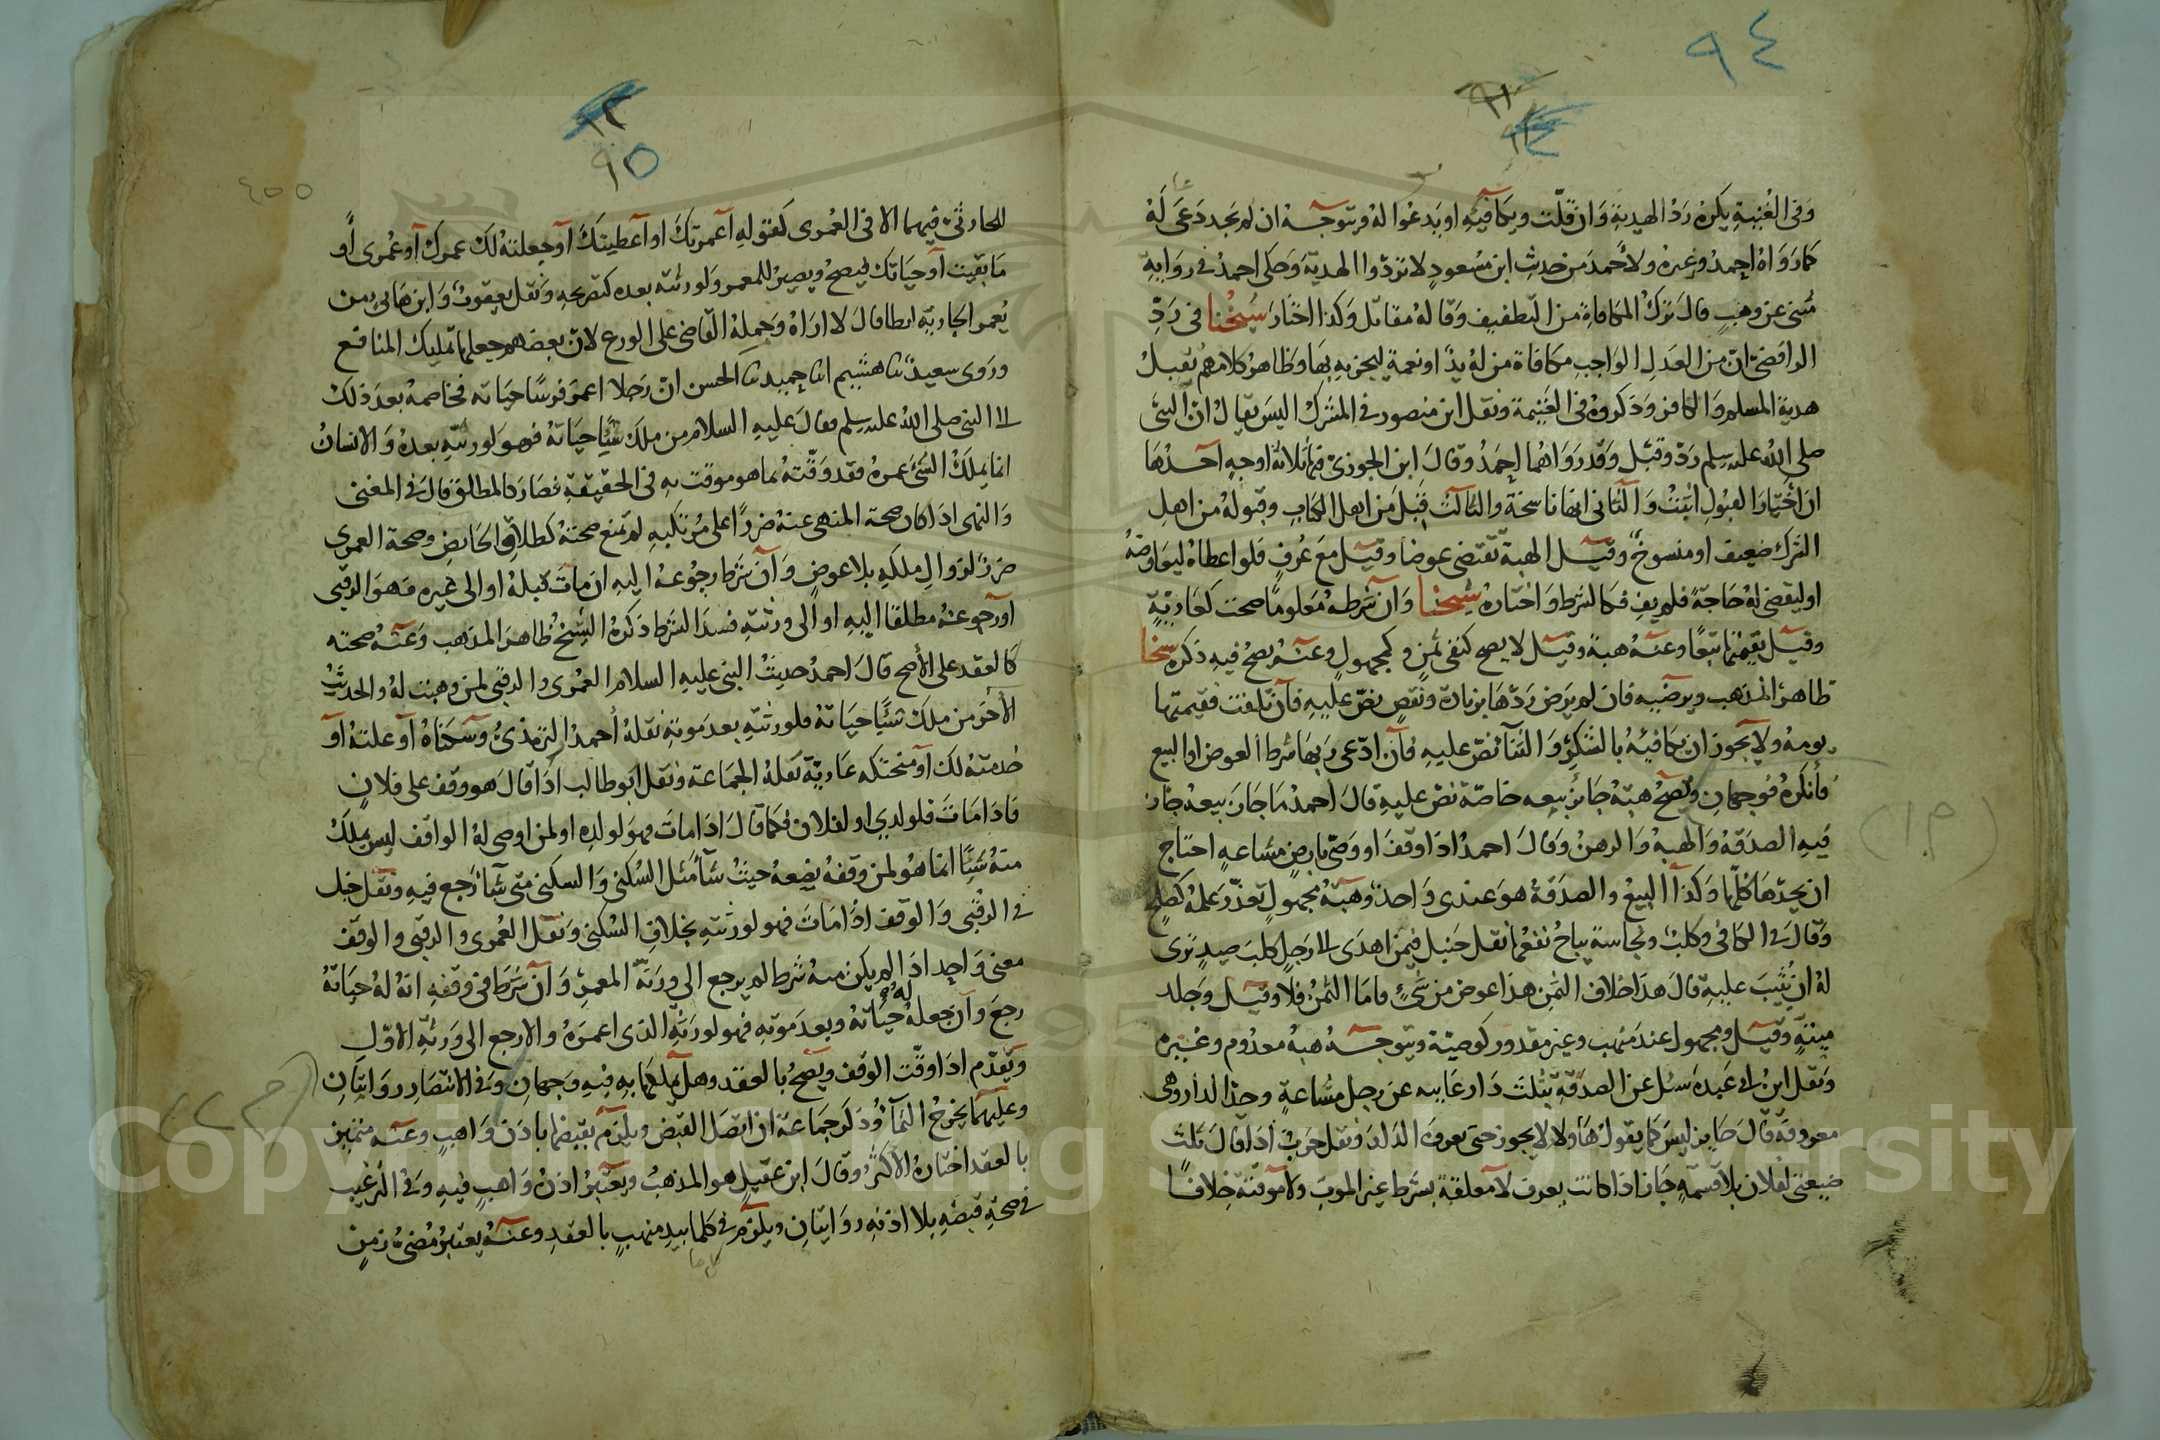 ٩٤
وفي الغنية يكره رد الهدية وان قلت ويكافيه او يدعوا له ويتوجه ان لم يجد دعى له
كما رواه احمد وغيره ولأحمد من حديث ابن مسعود لا تردوا الهدية وحكى احمد في رواية
مثنى عن وهب قال ترك المكافاة من التطفيف وقاله مقاتل وكذا اختار شيخنا في رد
الرافضي ان من العدل الواجب مكافاة من له يد او نعمة ليجزيه بها وظاهر كلامهم تقبل
هدية المسلم والكافر وذكروه في الغنيمة ونقل ابن منصور في المشرك اليس يقال ان النبي
صلى الله عليه وسلم رد وقبل وقد رواهما احمد وقال ابن الجوزي فيها ثلاثة اوجه احدها
ان اخبار القبول اثبت والثاني انها ناسخة والثالث قبل من اهل الكتاب وقبوله من اهل
الشرك ضعيف او منسوخ وقيل الهبة تقتضي عوضا وقيل مع عرف فلو اعطاه ليعاوضه
او ليقضي له حاجة فلم يف فكالشرط واختاره شيخنا وان شرطه معلوما صحت كعارية
وقيل بقيمتها بيعا وعنه هبة وقيل لا يصح كنفي ثمن وكمجهول وعنه يصح فيه ذكره شيخنا
ظاهر المذهب ويرضيه فان لم يرض ردها بزيادة ونقص نص عليه فان تلفت فقيمتها
يومه ولا يجوز ان يكافيه بالشكر والثنآ نص عليه فان ادعى ربها شرط العوض او البيع
فأنكره فوجهان وتصح هبة جائز بيعه خاصة نص عليه قال احمد ما جاز بيعه جاز
فيه الصدقة والهبة والرهن وقال احمد اذا وقف او وصى بارض مشاعة احتاج
ان يحدها كلها وكذا البيع والصدقة هو عندي واحد وهبة مجهول تعذر علمه كصلح
وقال في الكافي وكلب ونجاسة يباح نفعهما نقل حنبل فيمن اهدى الى رجل كلب صيد ترى
له ان يثيب عليه قال هذا خلاف الثمن هذا عوض من شئ فاما الثمن فلا وقيل وجلد
ميتة وقيل ومجهول عند متهب وغير مقدور كوصية ويتوجه منه هبة معدوم وغيره
ونقل ابن ابي عبدة سئل عن الصدقة بثلث دار غايبه عن رجل مشاعة وحد الدار وهي
معروفة قال جايز ليس كما يقول هاولا لا يجوز حتى يعرف الدار ونقل حرب اذا قال ثلث
ضيعتي لفلان بلا قسمة جاز اذا كانت يعرف لا معلقة بشرط غير الموت ولا موقتة خلافا
٩٥
للحارثي فيهما الا في العمرى كقوله اعمرتك او اعطيتك او جعلته لك عمرك او عمرى او
ما بقيت او حياتك فيصح ويصير للمعمر ولورثته بعده كتصريحه ونقل يعقوب وابن هانئ من
يعمر الجارية ايطا قال لا اراه وحمله القاضي على الورع لان بعضهم جعلها تمليك المنافع
وروى سعيد ثنا هشيم انا حميد ثنا الحسن ان رجلا اعمر فرسا حياته فخاصمه بعد ذلك
الى النبي صلى الله عليه وسلم فقال عليه السلام من ملك شيئا حياته فهو لورثته بعده والانسان
انما يملك الشئ عمره فقد وقته بما هو موقت به في الحقيقة فصار كالمطلق قال في المغني
والنهي اذا كان صحة المنهي عنه ضررا على مرتكبه لم تمنع صحته كطلاق الحايض وصحة العمرى
ضرر لزوال ملكه بلا عوض وان شرط رجوعه اليه ان مات قبله او الى غيره فهو الرقبى
او رجوعه مطلقا اليه او الى ورثته فسد الشرط ذكره الشيخ ظاهر المذهب وعنه صحته
كالعقد على الأصح قال احمد حديث النبي عليه السلام العمرى والرقبى لمن وهبت له والحديث
الأخر من ملك شيئا حياته فلورثته بعد موته نقله أحمد الترمذي وسكناه او غلته او
خدمته لك او منحتكه عارية نقله الجماعة ونقل ابو طالب اذا قال هو وقف على فلان
فاذا مات فلولدي او لفلان فكما قال اذا مات فهو لولده او لمن اوصى له الواقف ليس يملك
منه شيئا انما هو لمن وقفه يضعه حيث شآ مثل السكنى والسكنى متى شآ رجع فيه ونقل حنبل
في الرقبى والوقف اذا مات فهو لورثته بخلاف السكنى ونقل العمرى والرقبى والوقف
معنى واحد اذا لم يكن منه شرط لم يرجع الى ورثة المعمر وان شرط في وقفه انه له حياته
رجع وان جعله له حياته وبعد موته فهو لورثة الذي اعمره والا رجع الى ورثة الاول
وتقدم اذا وقت الوقف ويصح بالعقد وهل يملكها به فيه وجهان وفي الانتصار روايتان
وعليهما يخرج النمآ وذكر جماعة ان اتصل القبض ويلزم بقبضها باذن واهب وعنه متميز
بالعقد اختاره الأكثر وقال ابن عقيل هو المذهب ويعتبر اذن واهب فيه وفي الترغيب
في صحة قبضه بلا اذنه روايتان ويلزم في كلما بيد متهب بالعقد وعنه يعتبر مضي زمن
Copyright © King Saud University